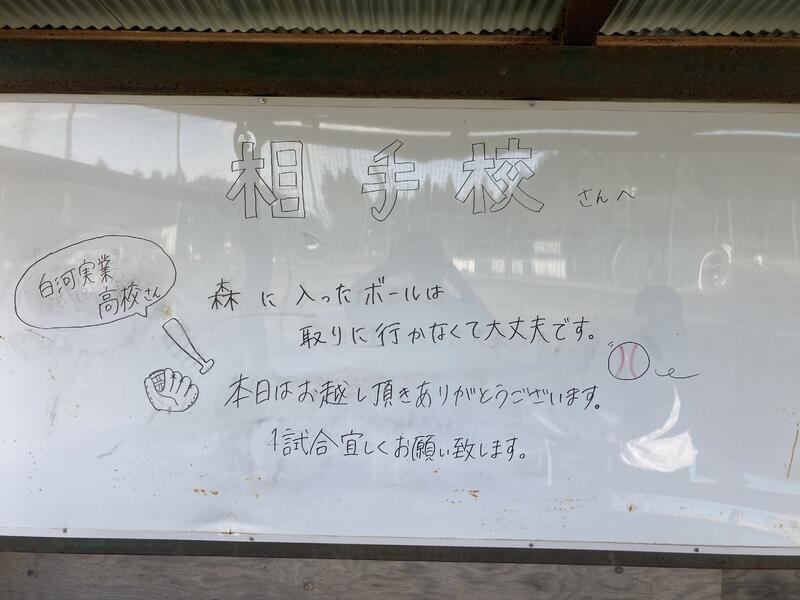 相手校さんへ
白河実業
高校さん
森に入ったボールは
取りに行かなくて大丈夫です。
本日はお越し頂きありがとうございます。
1試合宜しくお願い致します。